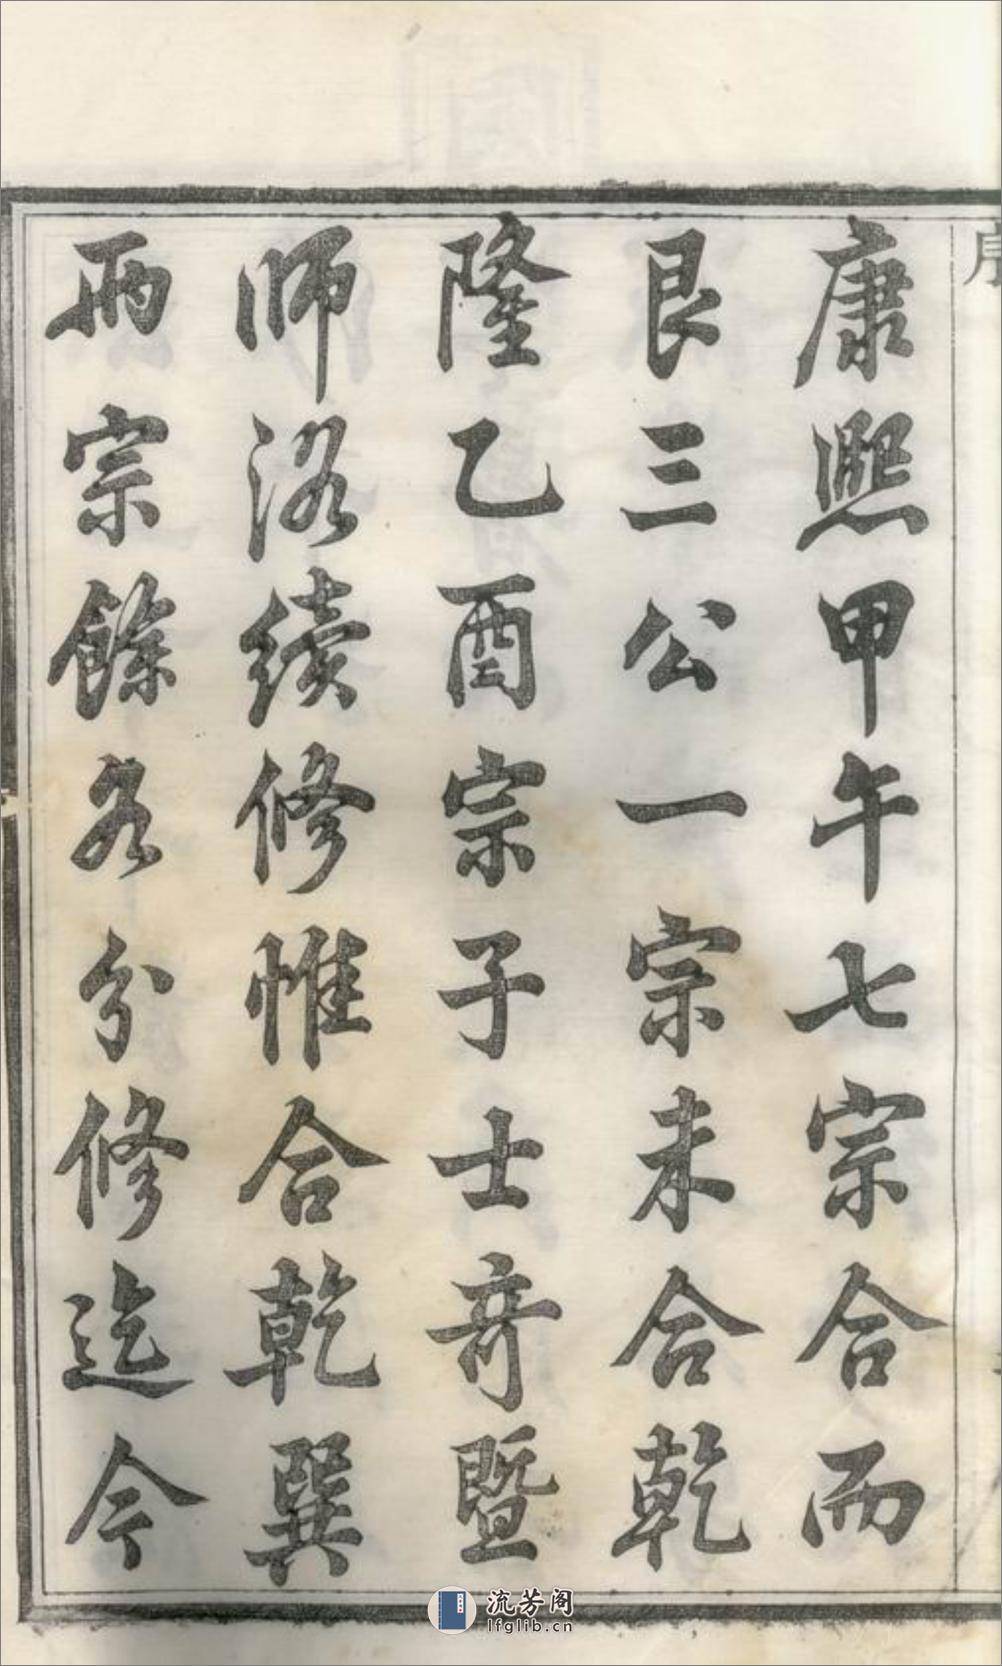 康熙甲午七宗合而
艮三公一宗未合乾
隆乙酉宗子士奇暨
師洛續修惟合乾巽
兩宗餘各分修迄今
流芳阁
lfglib.cn